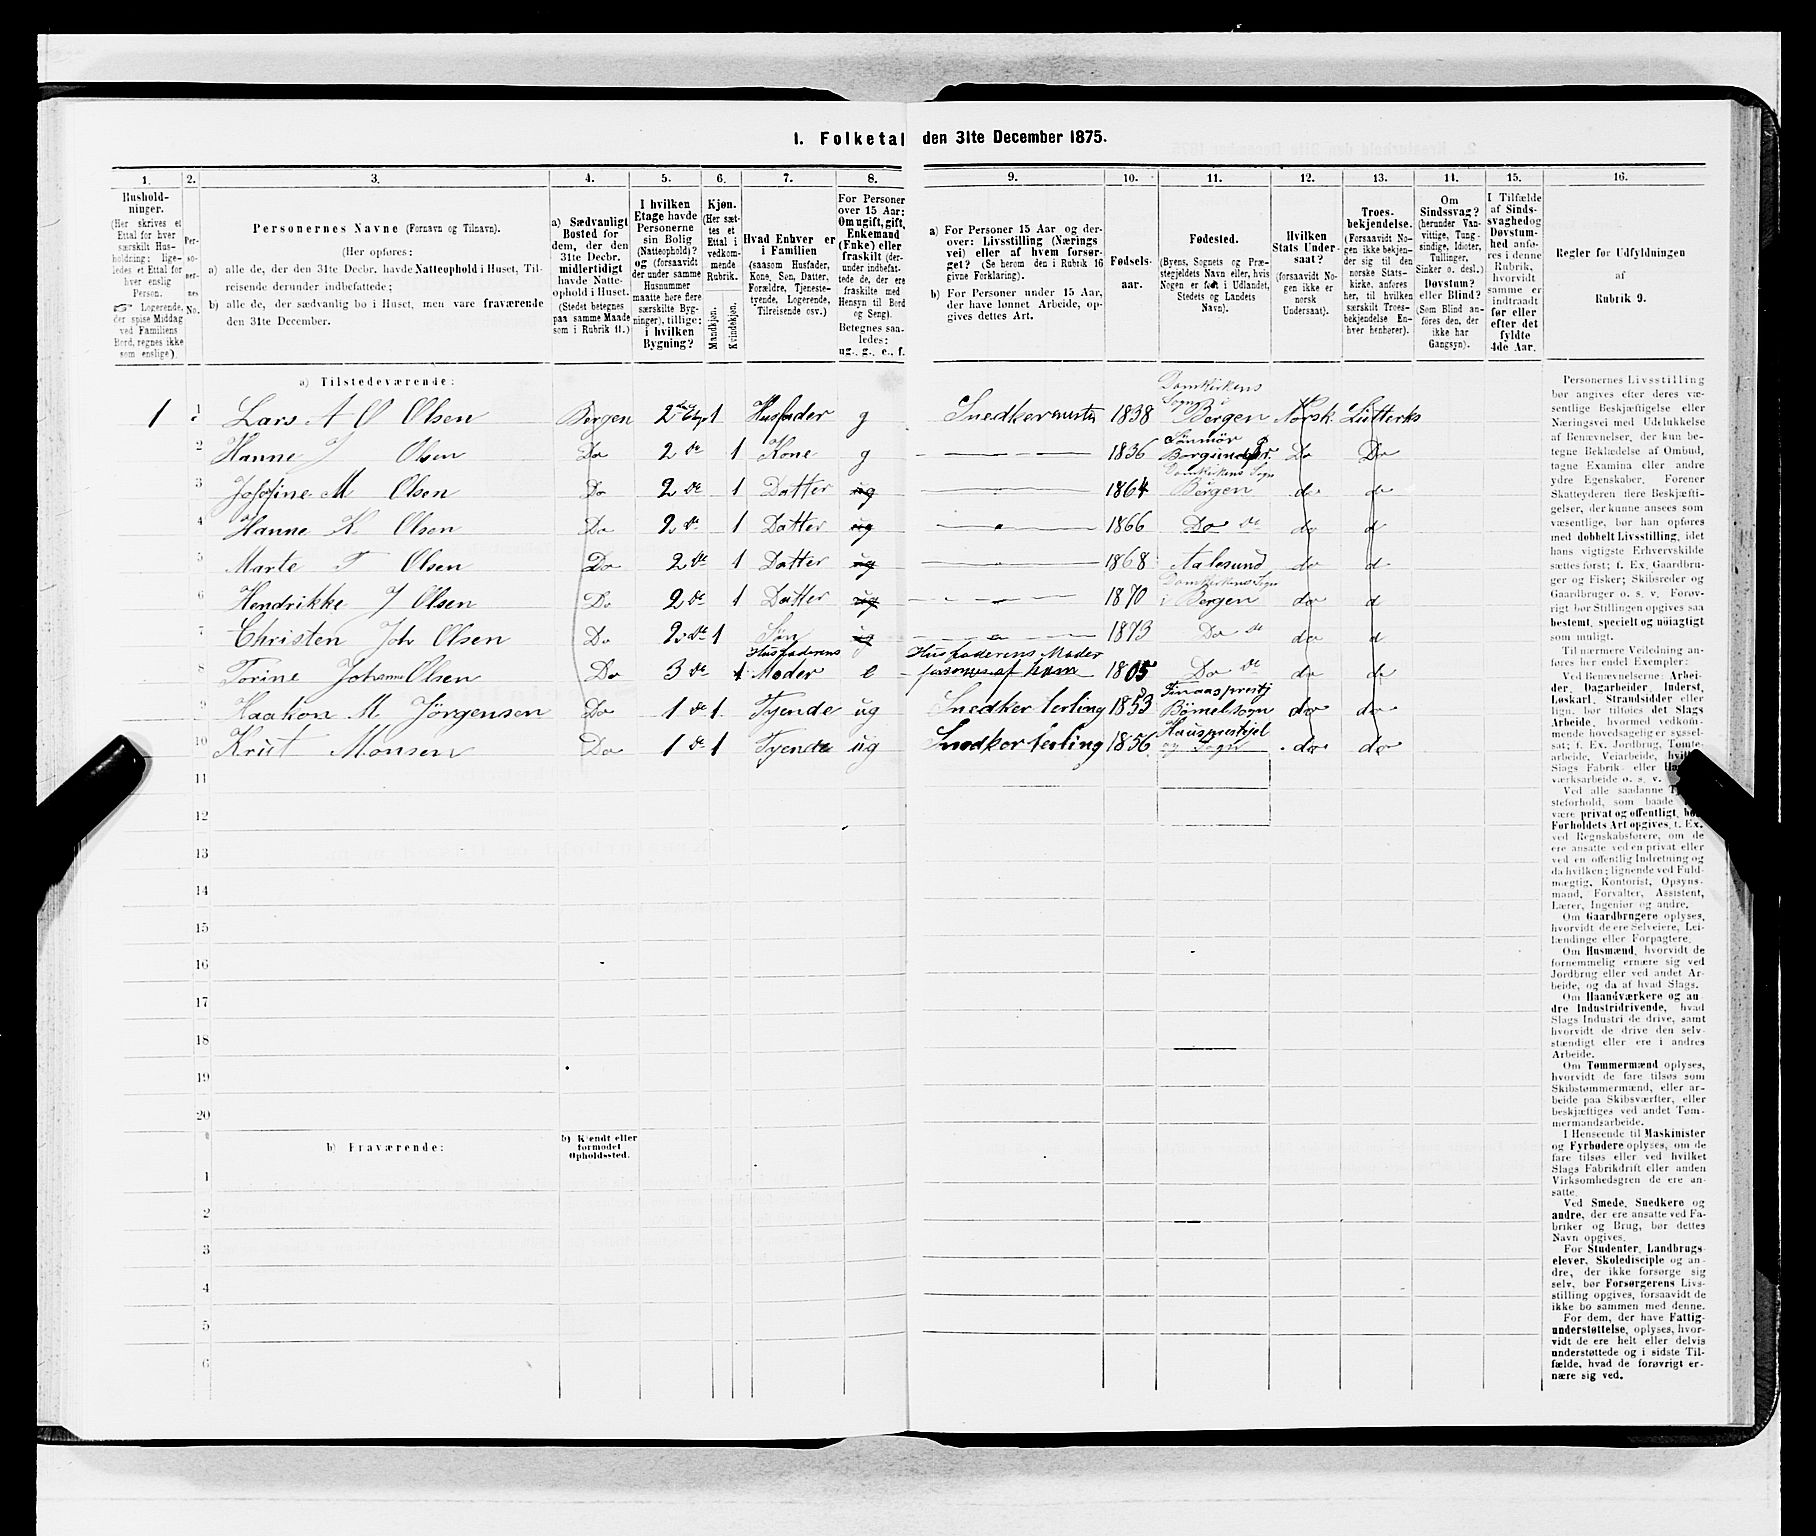 1. Folketal den 31te December 1875.
1. 2. 3. 4. 5. 6. 7. 8. 9. 10. 11. 12. 13. 14. 15. 16.
Hushold-
ninger.
(Her skrives et
Ettal for hver
særskilt Hus-
holdning; lige-
ledes et Ettal for
hver enslig
Person.
Logerende,
der spise Middag
ved Familiens
Bord, regnes ikke
som enslige).
Per-
so-
ner-
nes
No.
Personernes Navne (Fornavn og Tilnavn).
(Her opføres:
a) alle de, der den 31te Decbr. havde Natteophold i Huset, Til-
reisende derunder indbefattede;
b) alle de, der sædvanlig bo i Huset, men vare fraværende
den 31te December.
a) Sædvanligt
Bosted for
dem, der den
31te Decbr.
midlertidigt
havde Natte-
ophold i Huset.
(Stedet betegnes
paa samme Maade
som i Rubrik 11.)
I hvilken
Etage havde
Personerne
sin Bolig
(Natteophold)?
og (forsaavidt
der under samme
Husnummer
maatte høre flere
særskilte Byg-
ninger), tillige:
i hvilken
Bygning?
Kjøn.
(Her sæt-
tes et
Ettal i
vedkom-
mende
Rubrik.
Mandkjøn.
Kvindekjøn.
Hvad Enhver er
i Familien
(saasom Husfader,
Kone, Søn, Datter,
Forældre, Tjeneste-
tyende, Logerende,
Tilreisende osv.)
For Personer
over 15 Aar:
Om ugift, gift,
Enkemand
(Enke) eller
fraskilt (der-
under indbefat-
tede de, der ere
fraskilte med
Hensyn til Bord
og Seng).
Betegnes saa-
ledes:
ug., g., e., f.
a) For Personer 15 Aar og der-
over: Livsstilling (Nærings-
vei) eller af hvem forsør-
get? (Se herom den i Rubrik 16
givne Forklaring).
b) For Personer under 15 Aar,
der have lønnet Arbeide, op-
gives dettes Art.
Fødsels-
aar.
Fødested.
(Byens, Sognets og Præ-
stegjeldets Navn eller, hvis
Nogen er født i Udlandet,
Stedets og Landets
Navn).
Hvilken
Stats Under-
saat?
(forsaavidt No-
gen ikke er
norsk
Undersaat).
Troes-
bekjendelse.
(Forsaavidt No-
gen ikke bekjen-
der sig til den
norske Stats-
kirke, anføres
her, til hvilken
særskilt Troes-
bekjendelse En-
hver henhører).
Om
Sindssvag?
(herunder Van-
vittige, Tung-
sindige, Idioter,
Tullinger,
Sinker o. desl.)
Døvstum?
eller Blind?
(Som Blind an-
føres den, der
ikke har
Gangsyn).
I Tilfælde
af Sinds-
svaghed og
Døvstum-
hed anfø-
res i denne
Rubrik,
hvorvidt
samme er
indtraadt
før eller
efter det
fyldte
4de Aar.
Regler før Udfyldningen
af
Rubrik 9.
a) Tilstedeværende:
1 1 Lars A O Olsen Bergen 2 1 Husfader g Snedkermester 1838 Domkirkens Sogn i Bergen Norsk Lutterks
2 Hanne J Olsen Do 2 de 1 Kone g 1836 Sønmør Borgund Do Do
3 Josefine M Olsen Do 2 de 1 Datter ug 1864 Domkirkens Sogn Bergen do do
4 Hanne K. Olsen Do 2 de 1 Datter ug 1866 Do do do d
5 Marte T Olsen Do 2 de 1 Datter ug 1868 Aalesund do d
6 Hendrikke J Olsen Do 2 de 1 Datter ug 1870 Domkirkens Sogn i Bergen do d
7 Christen Joh Olsen Do 2 de 1 Søn ug 1873 Do do do d
8 Torine Johanne Olsen Do 3 de 1 Husfaderens Moder e Husfaderens Moder forsørges af ham 1805 Do do do do
9 Haakon M Jörgensen Do 1 de 1 Tyende ug Snedker lerling 1853 Finaasprestj Bömel sogn do do
10 Knut Monsen Do 1 de 1 Tyende ug Snedker lerling 1856 Hausprestjel og Sogn do do
11
12
13
14
15
16
17
18
19
20
b) Fraværende:
b) Kjendt eller
formodet
Opholdssted.
1
2
3
4
5
6
Personernes Livsstilling
bør angives efter deres væ-
sentlige Beskjæftigelse eller
Næringsvei med Udelukkelse
af Benævnelser, der kun be-
tegne Beklædelse af Ombud,
tagne Examina eller andre
ydre Egenskaber. Forener
Skatteyderen flere Beskjæfti-
gelser, der kunne ansees som
væsentlige, bør han opføres
med dobbelt Livsstilling, idet
hans vigtigste Erhvervskilde
sættes først; f. Ex. Gaardbru-
ger og Fisker; Skibsreder og
Gaardbruger o. s. v. Forøv-
rigt bør Stillingen opgives saa
bestemt, specielt og nøiagtigt
som muligt.
Til nærmere Veiledning an-
føres her endel Exempler:
Ved Benævnelserne: Arbei-
der, Dagarbeider, Inderst,
Løskarl, Strandsidder eller
lign. bør tilføies det Slags
Arbeide, hvormed vedkom-
mende hovedsagelig er syssel-
sat; f. Ex. Jordbrug, Tømte-
arbeide, Veiarbeide, hvilket
Slags Fabrik- eller
værksarbeide o. s. v.
Ved alle saadanne
steforhold, som baade
være privat og offentligt, bør
Forholdets Art opgives, f. Ex.
ved Regnskabsførere, om de
ere ansatte ved en privat eller
ved en offentlig Indretning og
da hvilken; lignende ved Fuld-
mægtig, Kontorist, Opsyns-
mand, Forvalter, Assistent,
Lærer, Ingeniør og andre.
Om Gaardbrugere oplyses,
hvorvidt de ere Selveiere, Lei-
lændinge eller Forpagtere.
Om Husmænd, hvorvidt de
fornemmelig ernære sig ved
Jordbrug eller ved andet Ar-
beide, og da af hvad Slags.
Om Haandværkere og an-
dre Industridrivende, hvad
Slags Industri de drive, samt
hvorvidt de drive den selv-
stændigt eller ere i andres
Arbeide.
Om Tømmermænd oplyses,
hvorvidt de fare tilsøs som
Skibstømmermænd, eller ar-
beide paa Skibsværfter, eller
beskjæftiges ved andet Tøm-
mermandsarbeide.
I Henseende til Maskinister
og Fyrbødere oplyses, om de
fare tilsøs eller ved hvilket
Slags Fabrikdrift eller anden
Virksomhedsgren de ere an-
satte.
Ved Smede, Snedkere og
andre, der ere ansatte ved Fa-
briker og Brug, bør dettes
Navn opgives.
For Studenter, Landbrugs-
elever, Skoledisciple og an-
dre, der ikke forsørge sig
selv, bør Forsørgerens Livs-
stilling opgives, forsaavidt de
ikke bo sammen med denne.
For dem, der have Fattig-
understøttelse, oplyses, hvor-
vidt de ere helt eller delvis
understøttede og i sidste Til-
fælde, hvad de forøvrigt er-
nære sig ved.